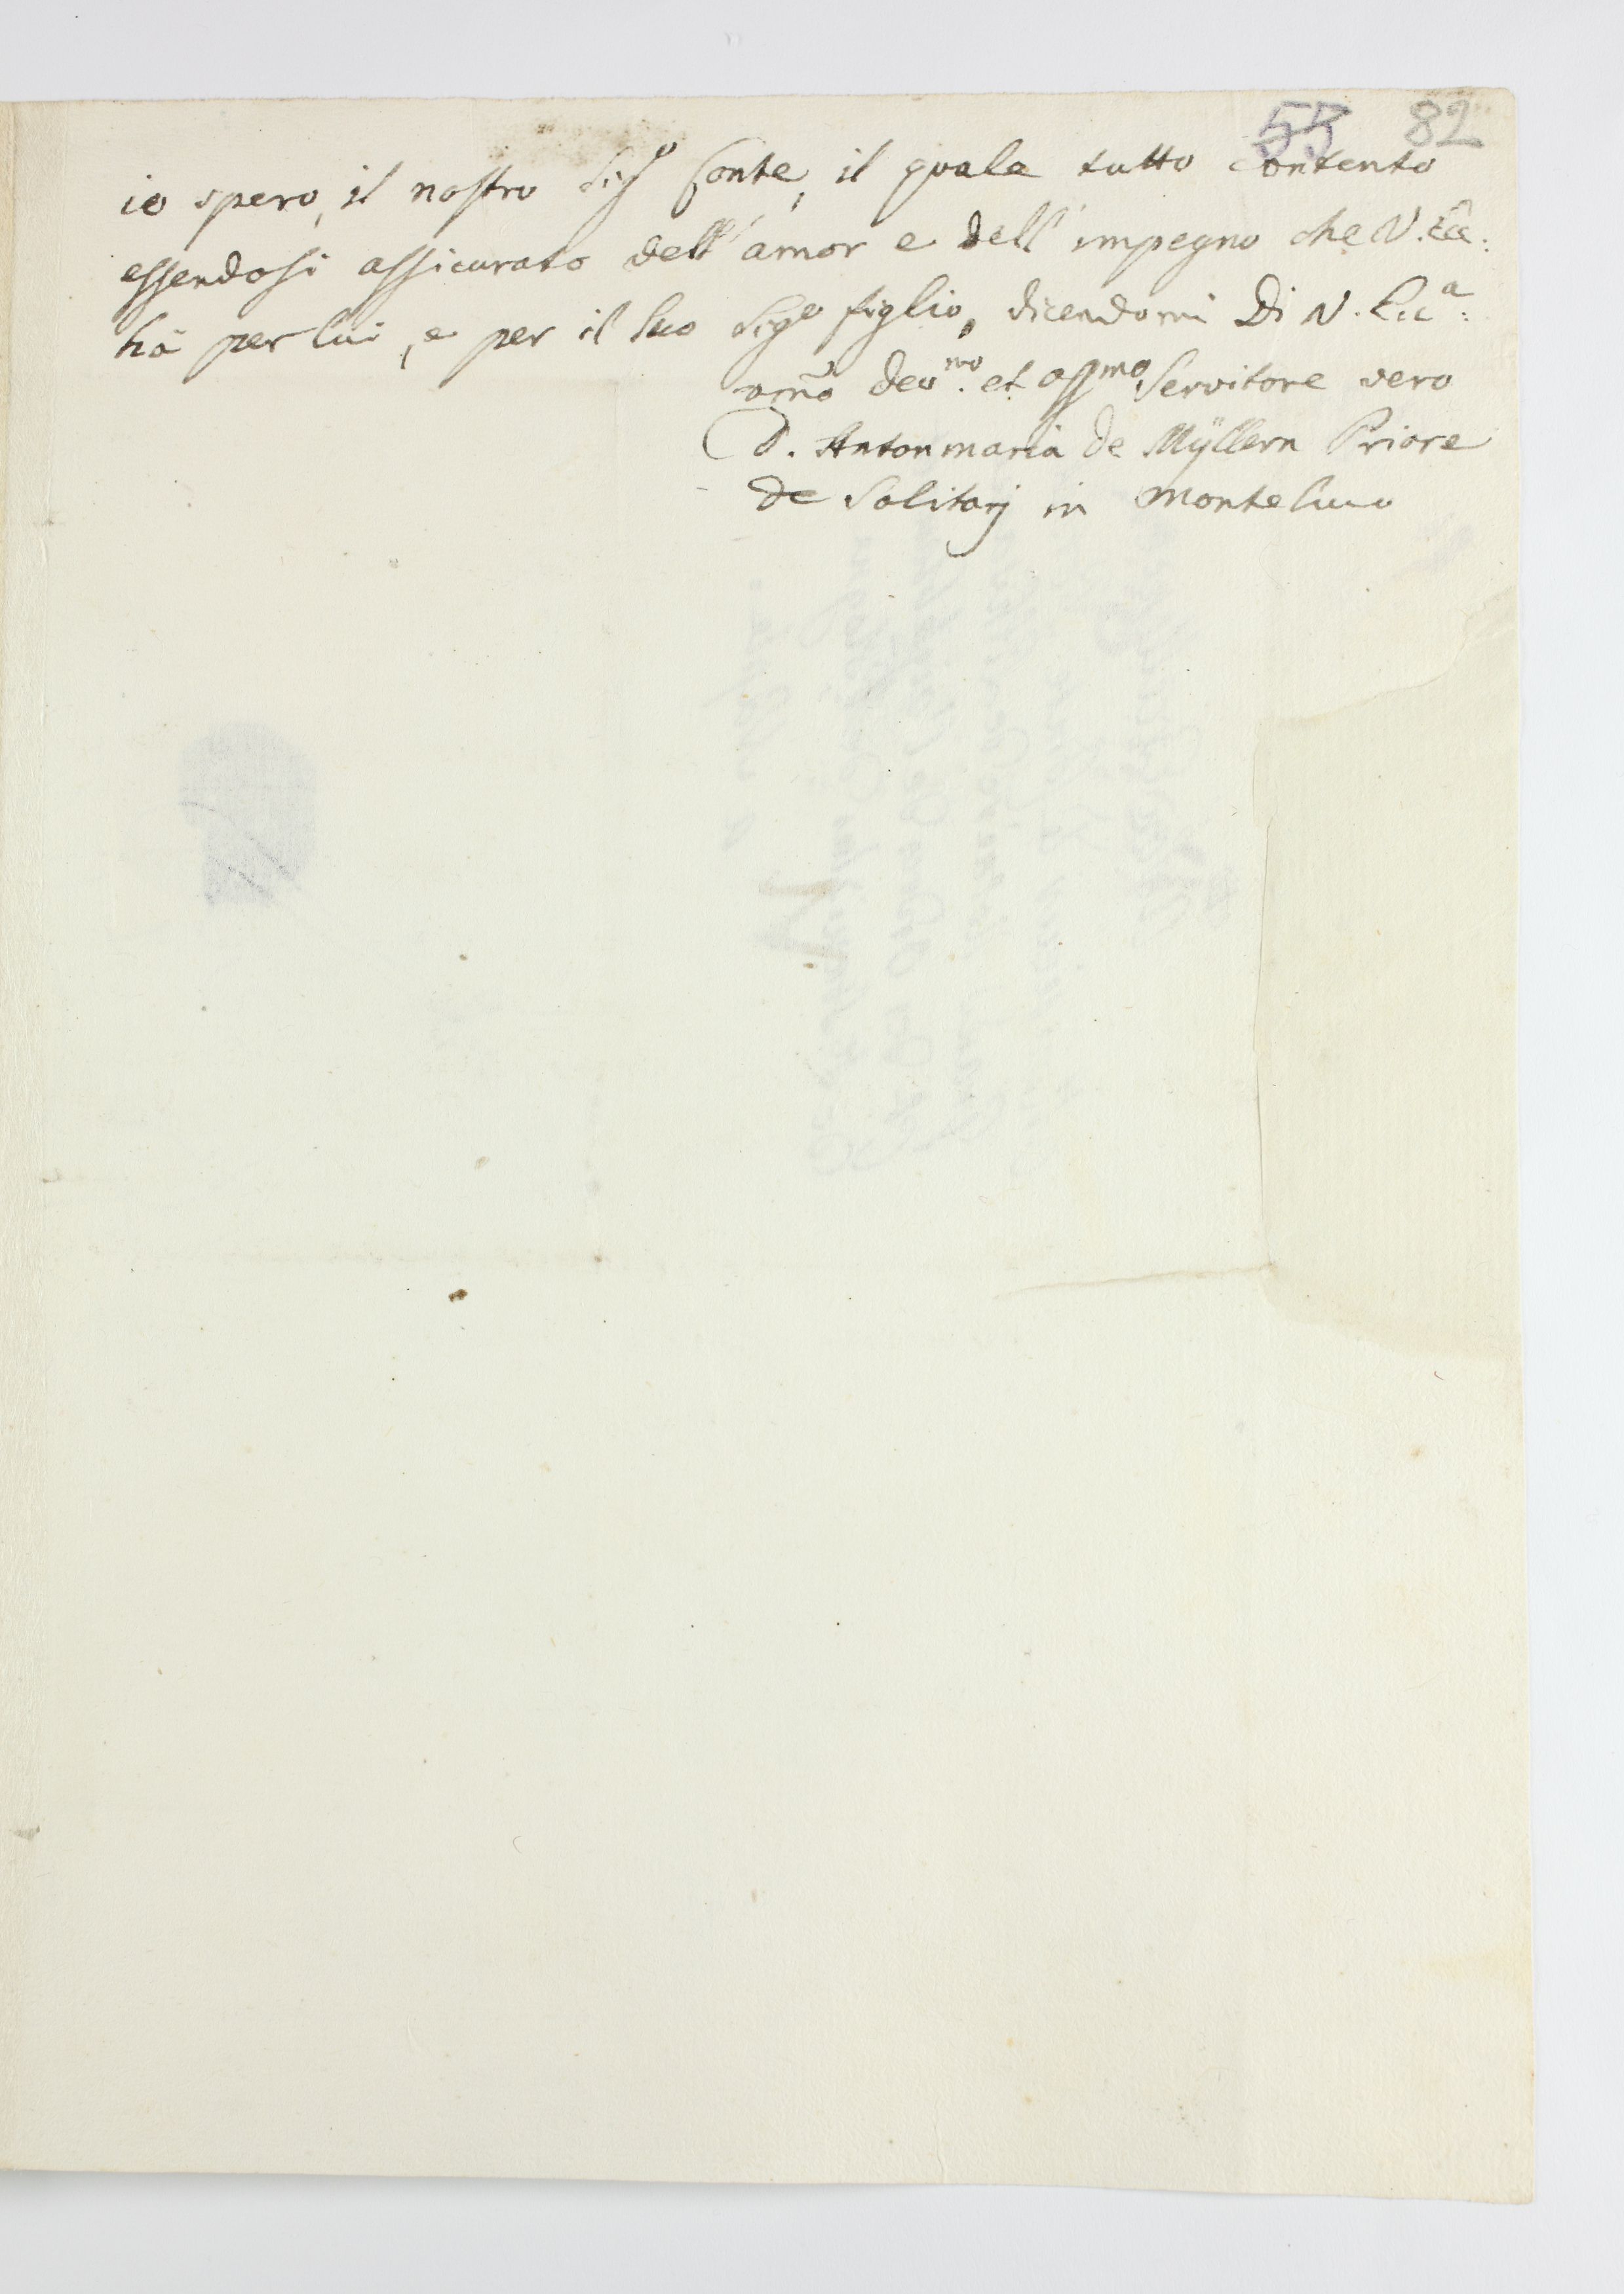 55 82
io spero, il nostro Sig.o Conte, il quale tutto contento
essendosi assicurato dell'amor e dell'impegno che V. Ecc:
hà per lui, e per il suo Sigo figlio, dicendomi Di V. Ecc.a:
umo devmo. et ossmo Servitore vero
D. Antonmaria de Myllern Priore
de Solitarj in Monteluco